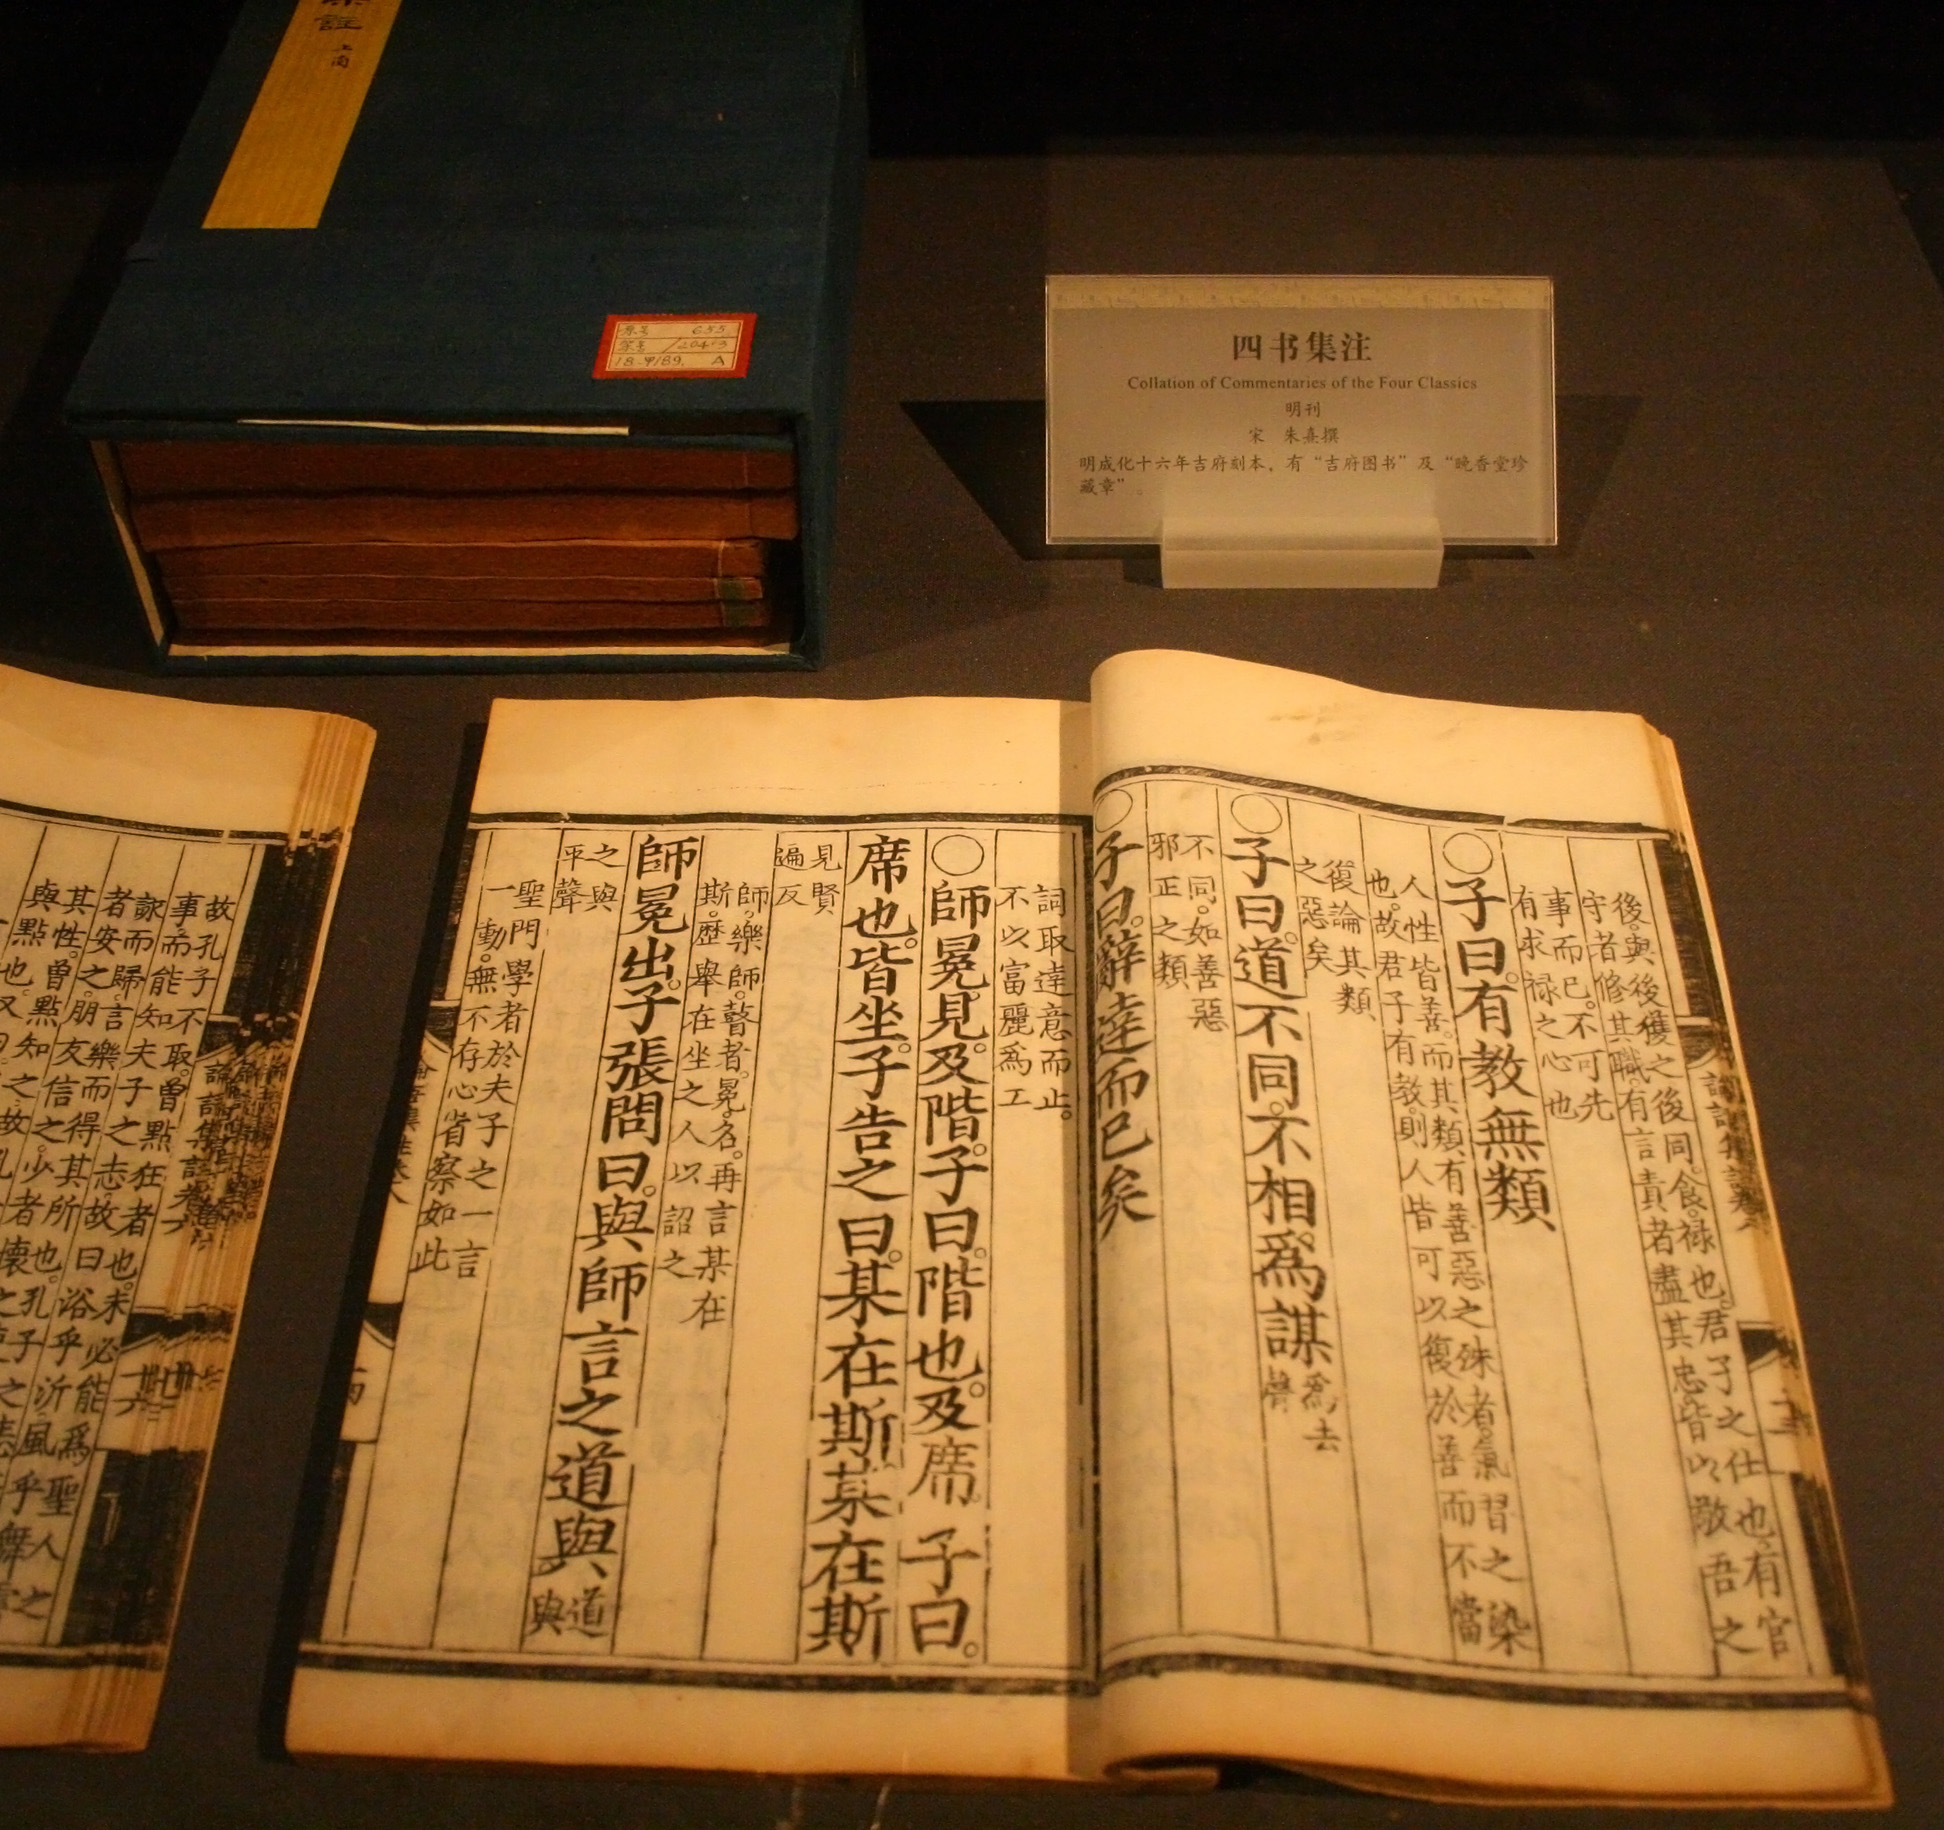 註
上函
655
20413
18-甲189. A
四书集注
Collation of Commentaries of the Four Classics
明刊
宋 朱熹撰
明成化十六年吉府刻本，有“吉府图书”及“晚香堂珍
藏章”。
後。與後獲之後同。食。祿也。君子之仕也。有官
守者修其職。有言責者盡其忠。皆以敬吾之
事而已。不可先
有求祿之心也
○子曰。有教無類
人性皆善。而其類有善惡之殊者。氣習之染
也。故君子有教。則人皆可以復於善而不當
復論其類
之惡矣
○子曰。道不同。不相爲謀
爲去
聲
不同。如善惡
邪正之類
○子曰。辭達而已矣
詞取達意而止。
不以富麗爲工
○師冕見。及階。子曰。階也。及席。子曰。
席也。皆坐。子告之曰。某在斯某在斯
見賢
遍反
師。樂師。瞽者。冕。名。再言某在
斯。歷舉在坐之人以詔之
師冕出。子張問曰。與師言之道與
道
與
之與
平聲
聖門學者於夫子之一言
一動。無不存心省察如此
故孔子不取。曾點狂者也。未必能爲聖人之
事。而能知夫子之志。故曰浴乎沂。風乎舞雩
詠而歸。言樂而得其所也。孔子之志
者安之。朋友信之。少者懷之
其性。曾點知之故孔
與點也。又曰
論語集註卷六
廿六